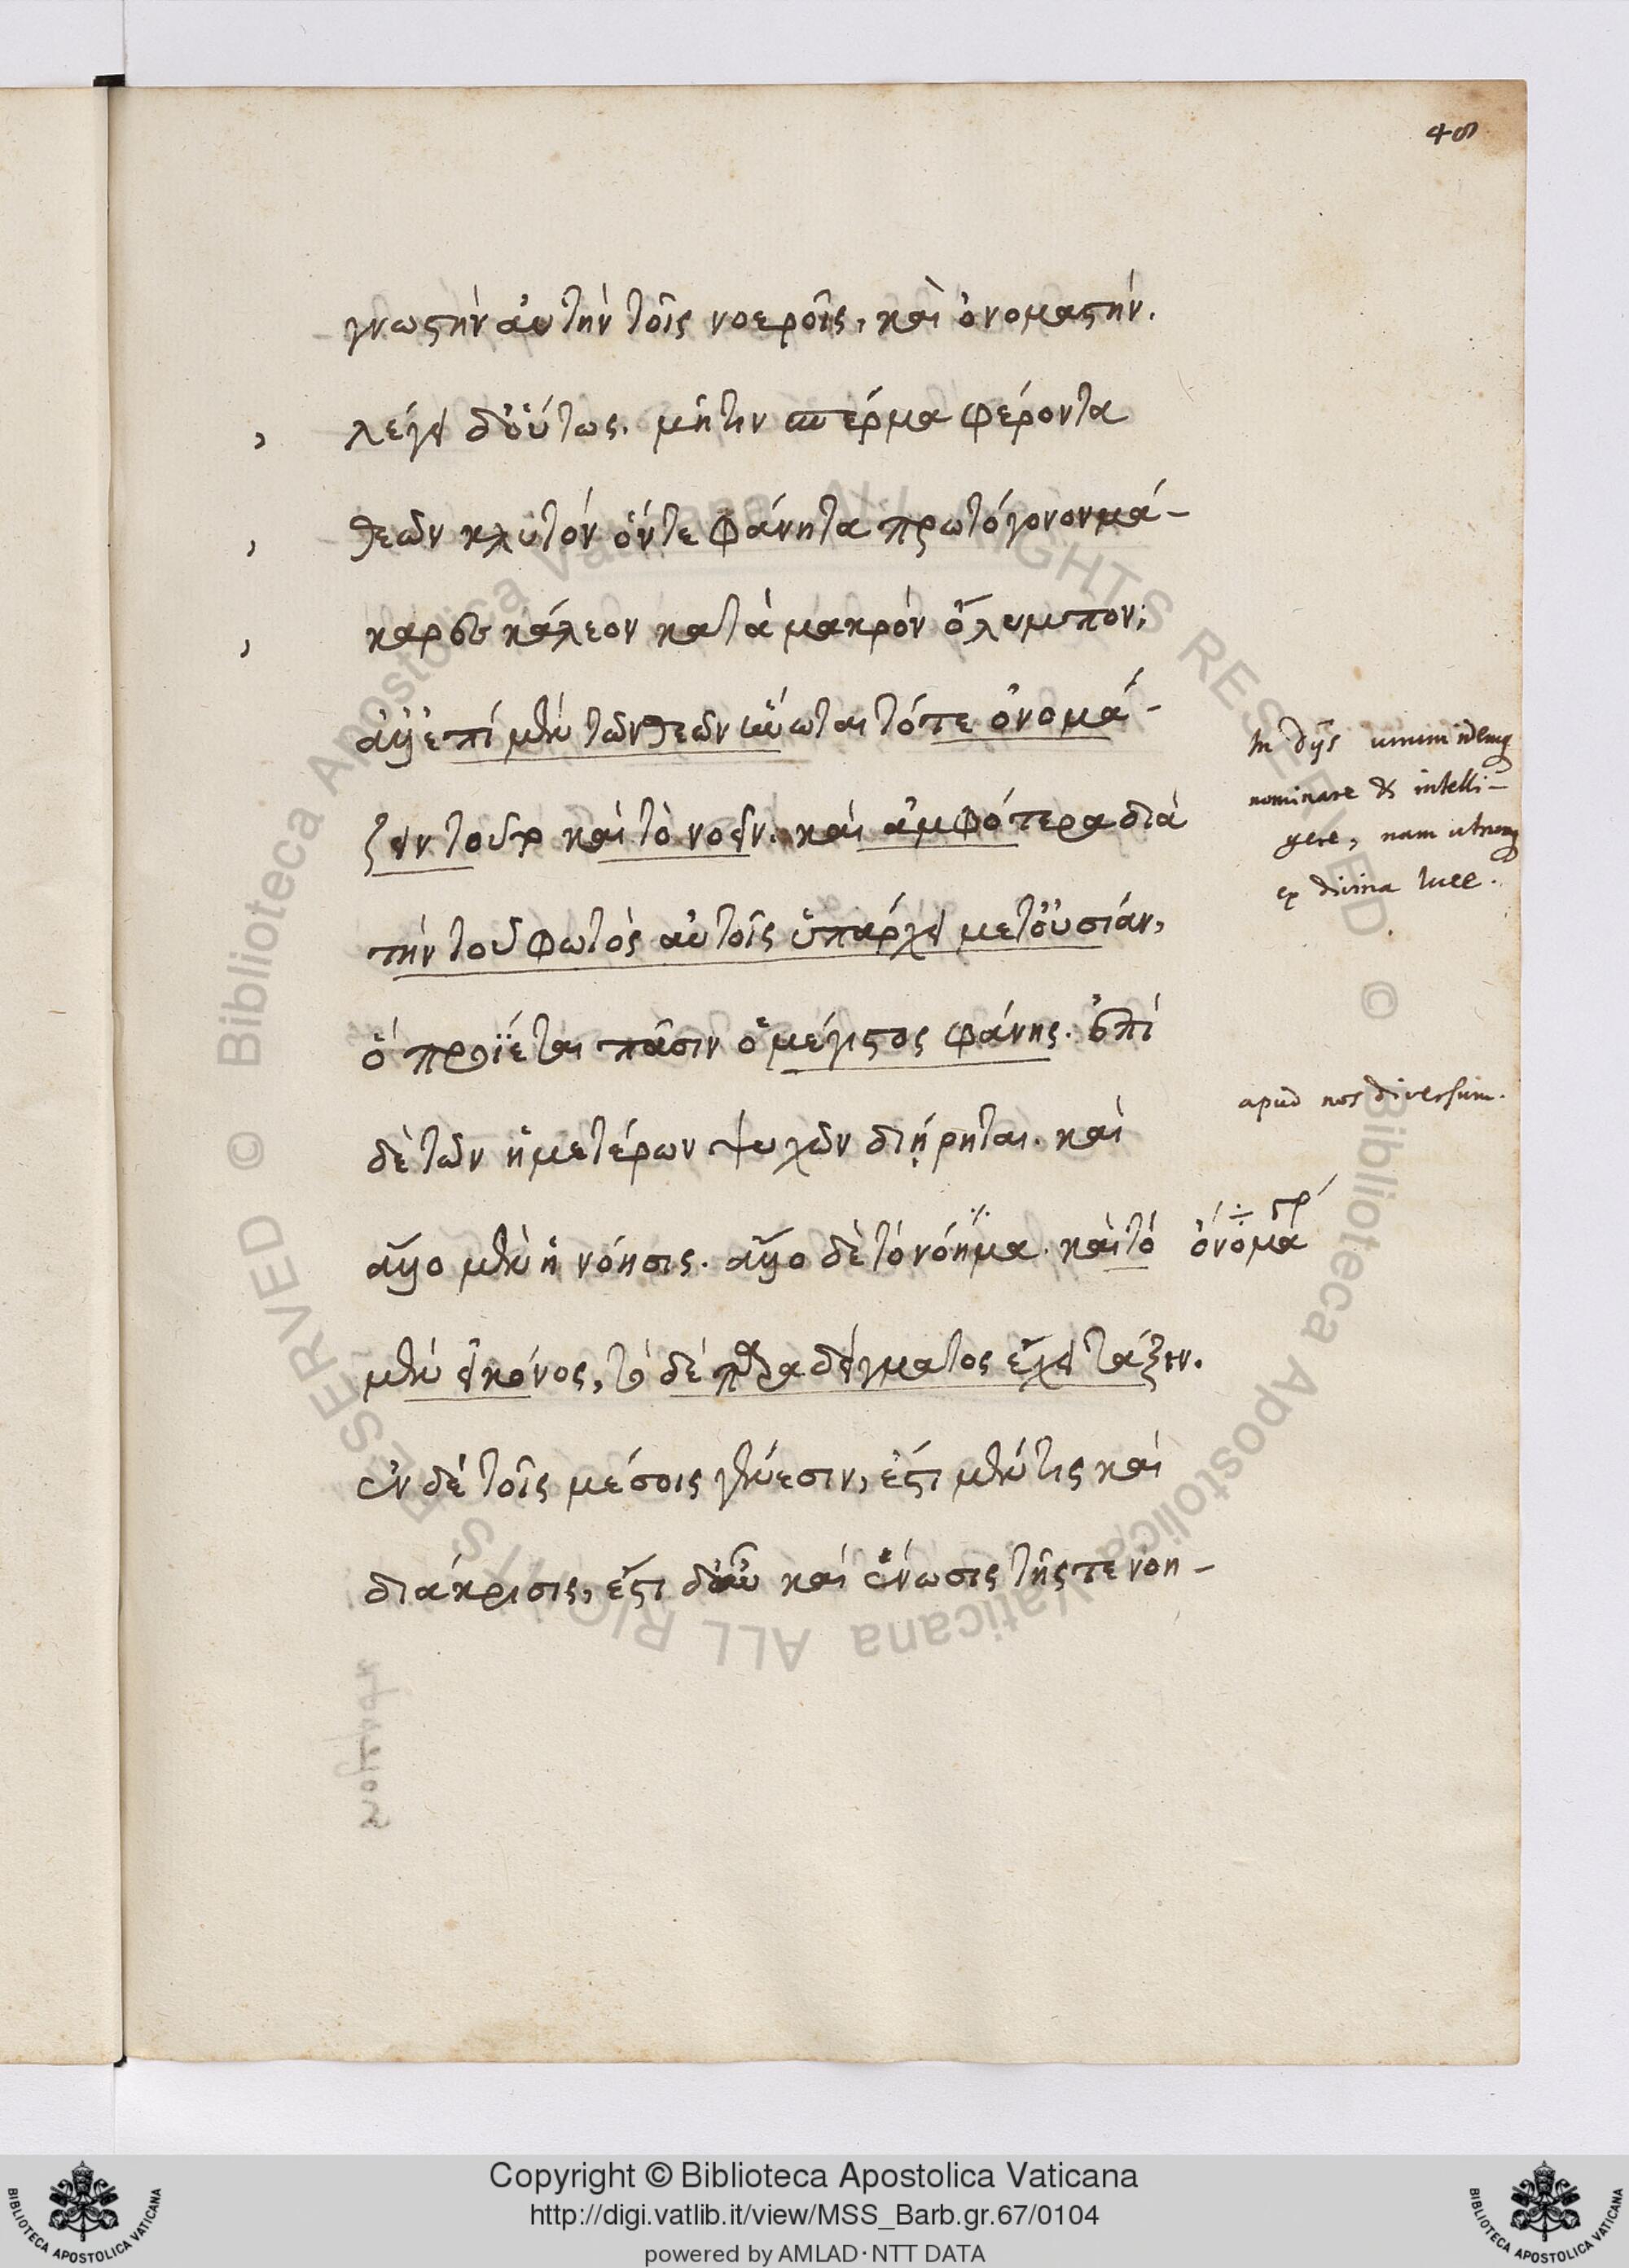 48
γνωστὴν αὐτὴν τοῖς νοεροῖς, καὶ ὀνομαστήν.
λέγει δ' οὕτως. μῆτιν σπέρμα φέροντα
θεῶν κλυτὸν ὅντε φάνητα πρωτόγονον μά-
καρες κάλεον κατὰ μακρὸν ὄλυμπον;
ἀλλ' ἐπὶ μὲν τῶν θεῶν ἥνωται τό τε ὀνομά-
ζειν τοῦτο καὶ τὸ νοεῖν. καὶ ἀμφότερα διὰ
τὴν τοῦ φωτὸς αὐτοῖς ὑπάρχει μετουσίαν,
ὃ προΐεται πᾶσιν ὁ μέγιστος φάνης. ἐπὶ
δὲ τῶν ἡμετέρων ψυχῶν διῄρηται. καὶ
ἄλλο μὲν ἡ νόησις. ἄλλο δὲ τὸ νόημα. καὶ τὸ
μὲν εἰκόνος, τὸ δὲ παραδείγματος ἔχει τάξιν.
ἐν δὲ τοῖς μέσοις γένεσιν, ἔστι μέν τις καὶ
διάκρισις, ἔστι δ' οὖν καὶ ἕνωσις τῆς τε νοη-
In dijs unum idemq
nominare & intelli-
gere, nam utrumq
ex divina luce.
apud nos diversum.
ὄνομα
Copyright © Biblioteca Apostolica Vaticana
http://digi.vatlib.it/view/MSS_Barb.gr.67/0104
powered by AMLAD·NTT DATA
© Biblioteca Apostolica Vaticana ALL RIGHTS RESERVED © Biblioteca Apostolica Vaticana ALL RIGHTS RESERVED
BIBLIOTECA APOSTOLICA VATICANA
BIBLIOTECA APOSTOLICA VATICANA